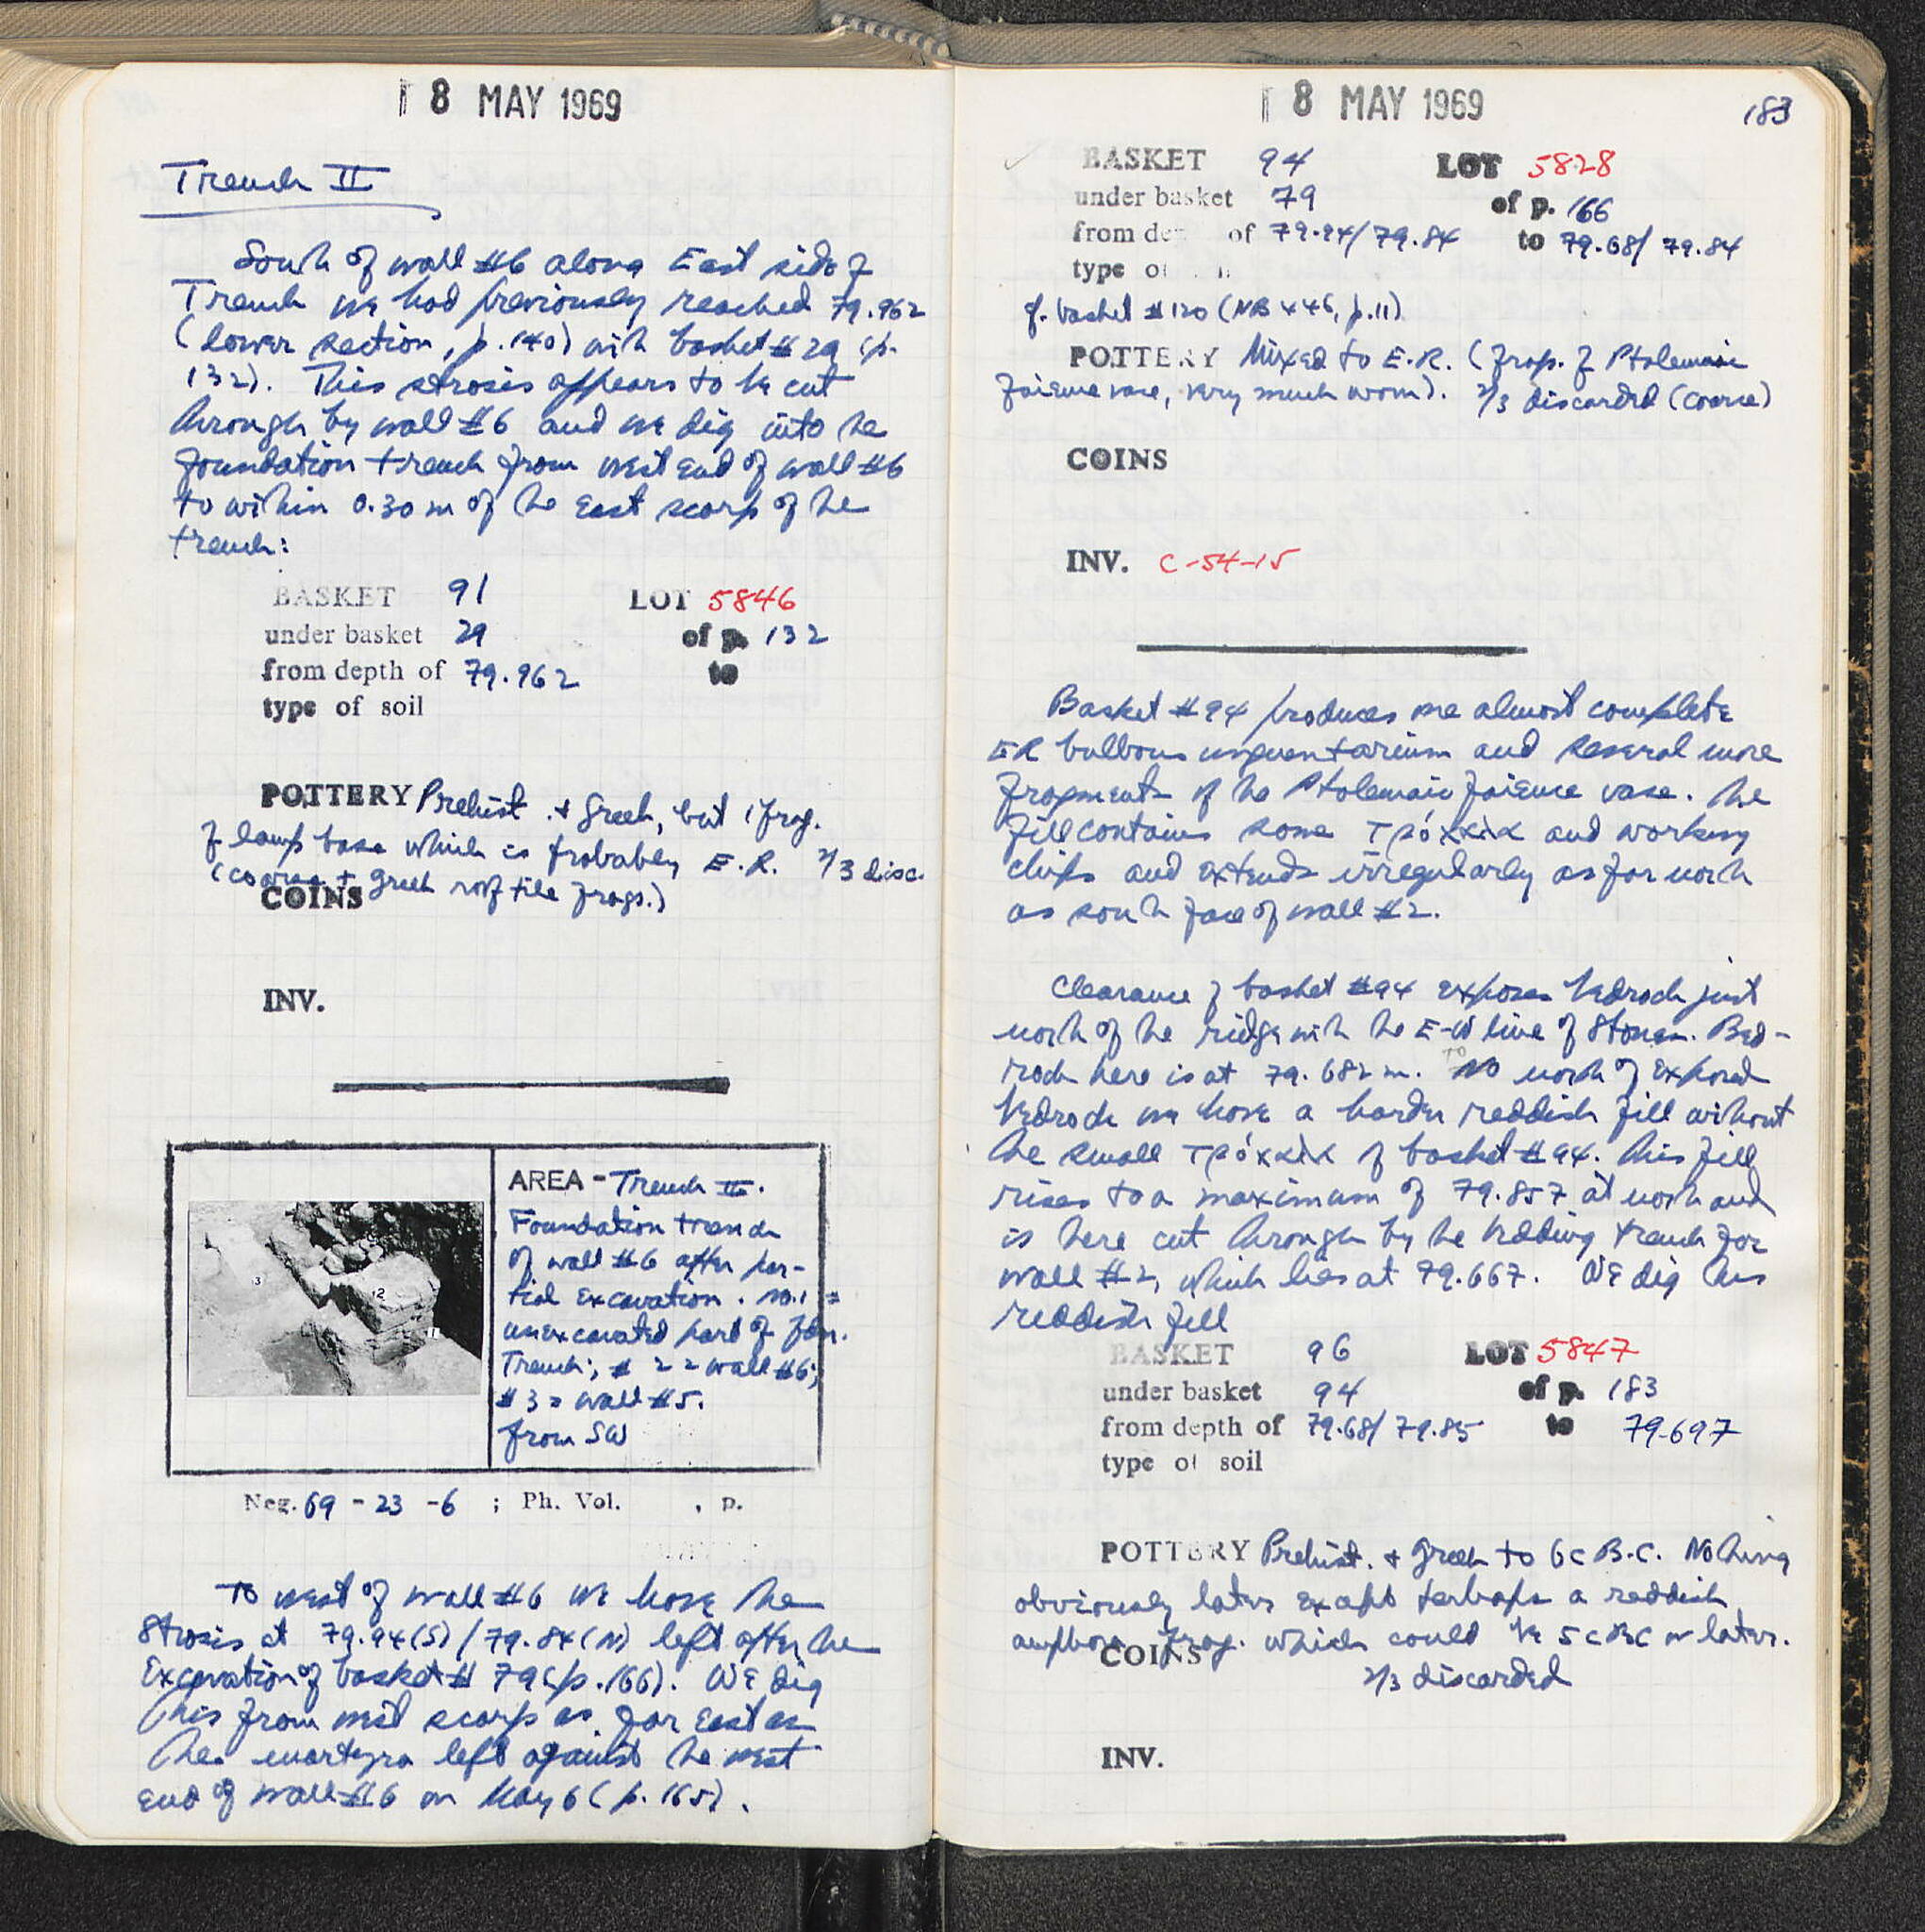 18 MAY 1969
Trench II
South of wall #6 along East side of
Trench we had previously reached 79.962
(lower section, p. 140) with basket #29 (p.
132). This strosis appears to be cut
through by wall #6 and we dig into the
foundation trench from west end of wall #6
to within 0.30 m of the East scarp of the
trench:
BASKET 91 LOT 5846
under basket 29 of p. 132
from depth of 79.962 to
type of soil
POTTERY Prehist. + Greek, but 1 frag.
of lamp base which is probably E.R. 2/3 disc.
(coarse + Greek roof tile frags.)
COINS
INV.
AREA - Trench II.
Foundation trench
of wall #6 after par-
tial excavation. No. 1 =
unexcavated part of fdn.
Trench; #2 = wall #6;
#3 = wall #5.
from SW
3
2
1
Neg. 69 - 23 - 6 ; Ph. Vol. , p.
To west of wall #6 we have the
Strosis at 79.94(S)/79.84(N) left after the
Excavation of basket # 79 (p. 166). We dig
this from west scarp as far East as
the martyra left against the west
end of wall #6 on May 6 (p. 165).
18 MAY 1969
183
BASKET 94 LOT 5828
under basket 79 of p. 166
from de of 79.94/79.84 to 79.68/79.84
type o
cf. basket #120 (NB 446, p. 11)
POTTERY Mixed to E.R. (frag. of Ptolemaic
faience vase, very much worn). 2/3 discarded (coarse)
COINS
INV. C-54-15
Basket #94 produces one almost complete
ER bulbous unguentarium and several more
fragments of the Ptolemaic faience vase. The
fill contains some τρόχαλα and working
chips and extends irregularly as far north
as south face of wall #2.
Clearance of basket #94 exposes bedrock just
north of the ridge with the E-W line of stones. Bed-
rock here is at 79.682 m. To north of exposed
bedrock we have a harder reddish fill without
the small τρόχαλα of basket #94. This fill
rises to a maximum of 79.857 at north and
is here cut through by the bedding trench for
wall #2, which lies at 79.667. We dig this
reddish fill
BASKET 96 LOT 5847
under basket 94 of p. 183
from depth of 79.68/79.85 to 79.697
type of soil
POTTERY Prehist. + Greek to 6c B.C. Nothing
obviously later except perhaps a reddish
amphora frag. which could be 5c BC or later.
COINS
2/3 discarded
INV.